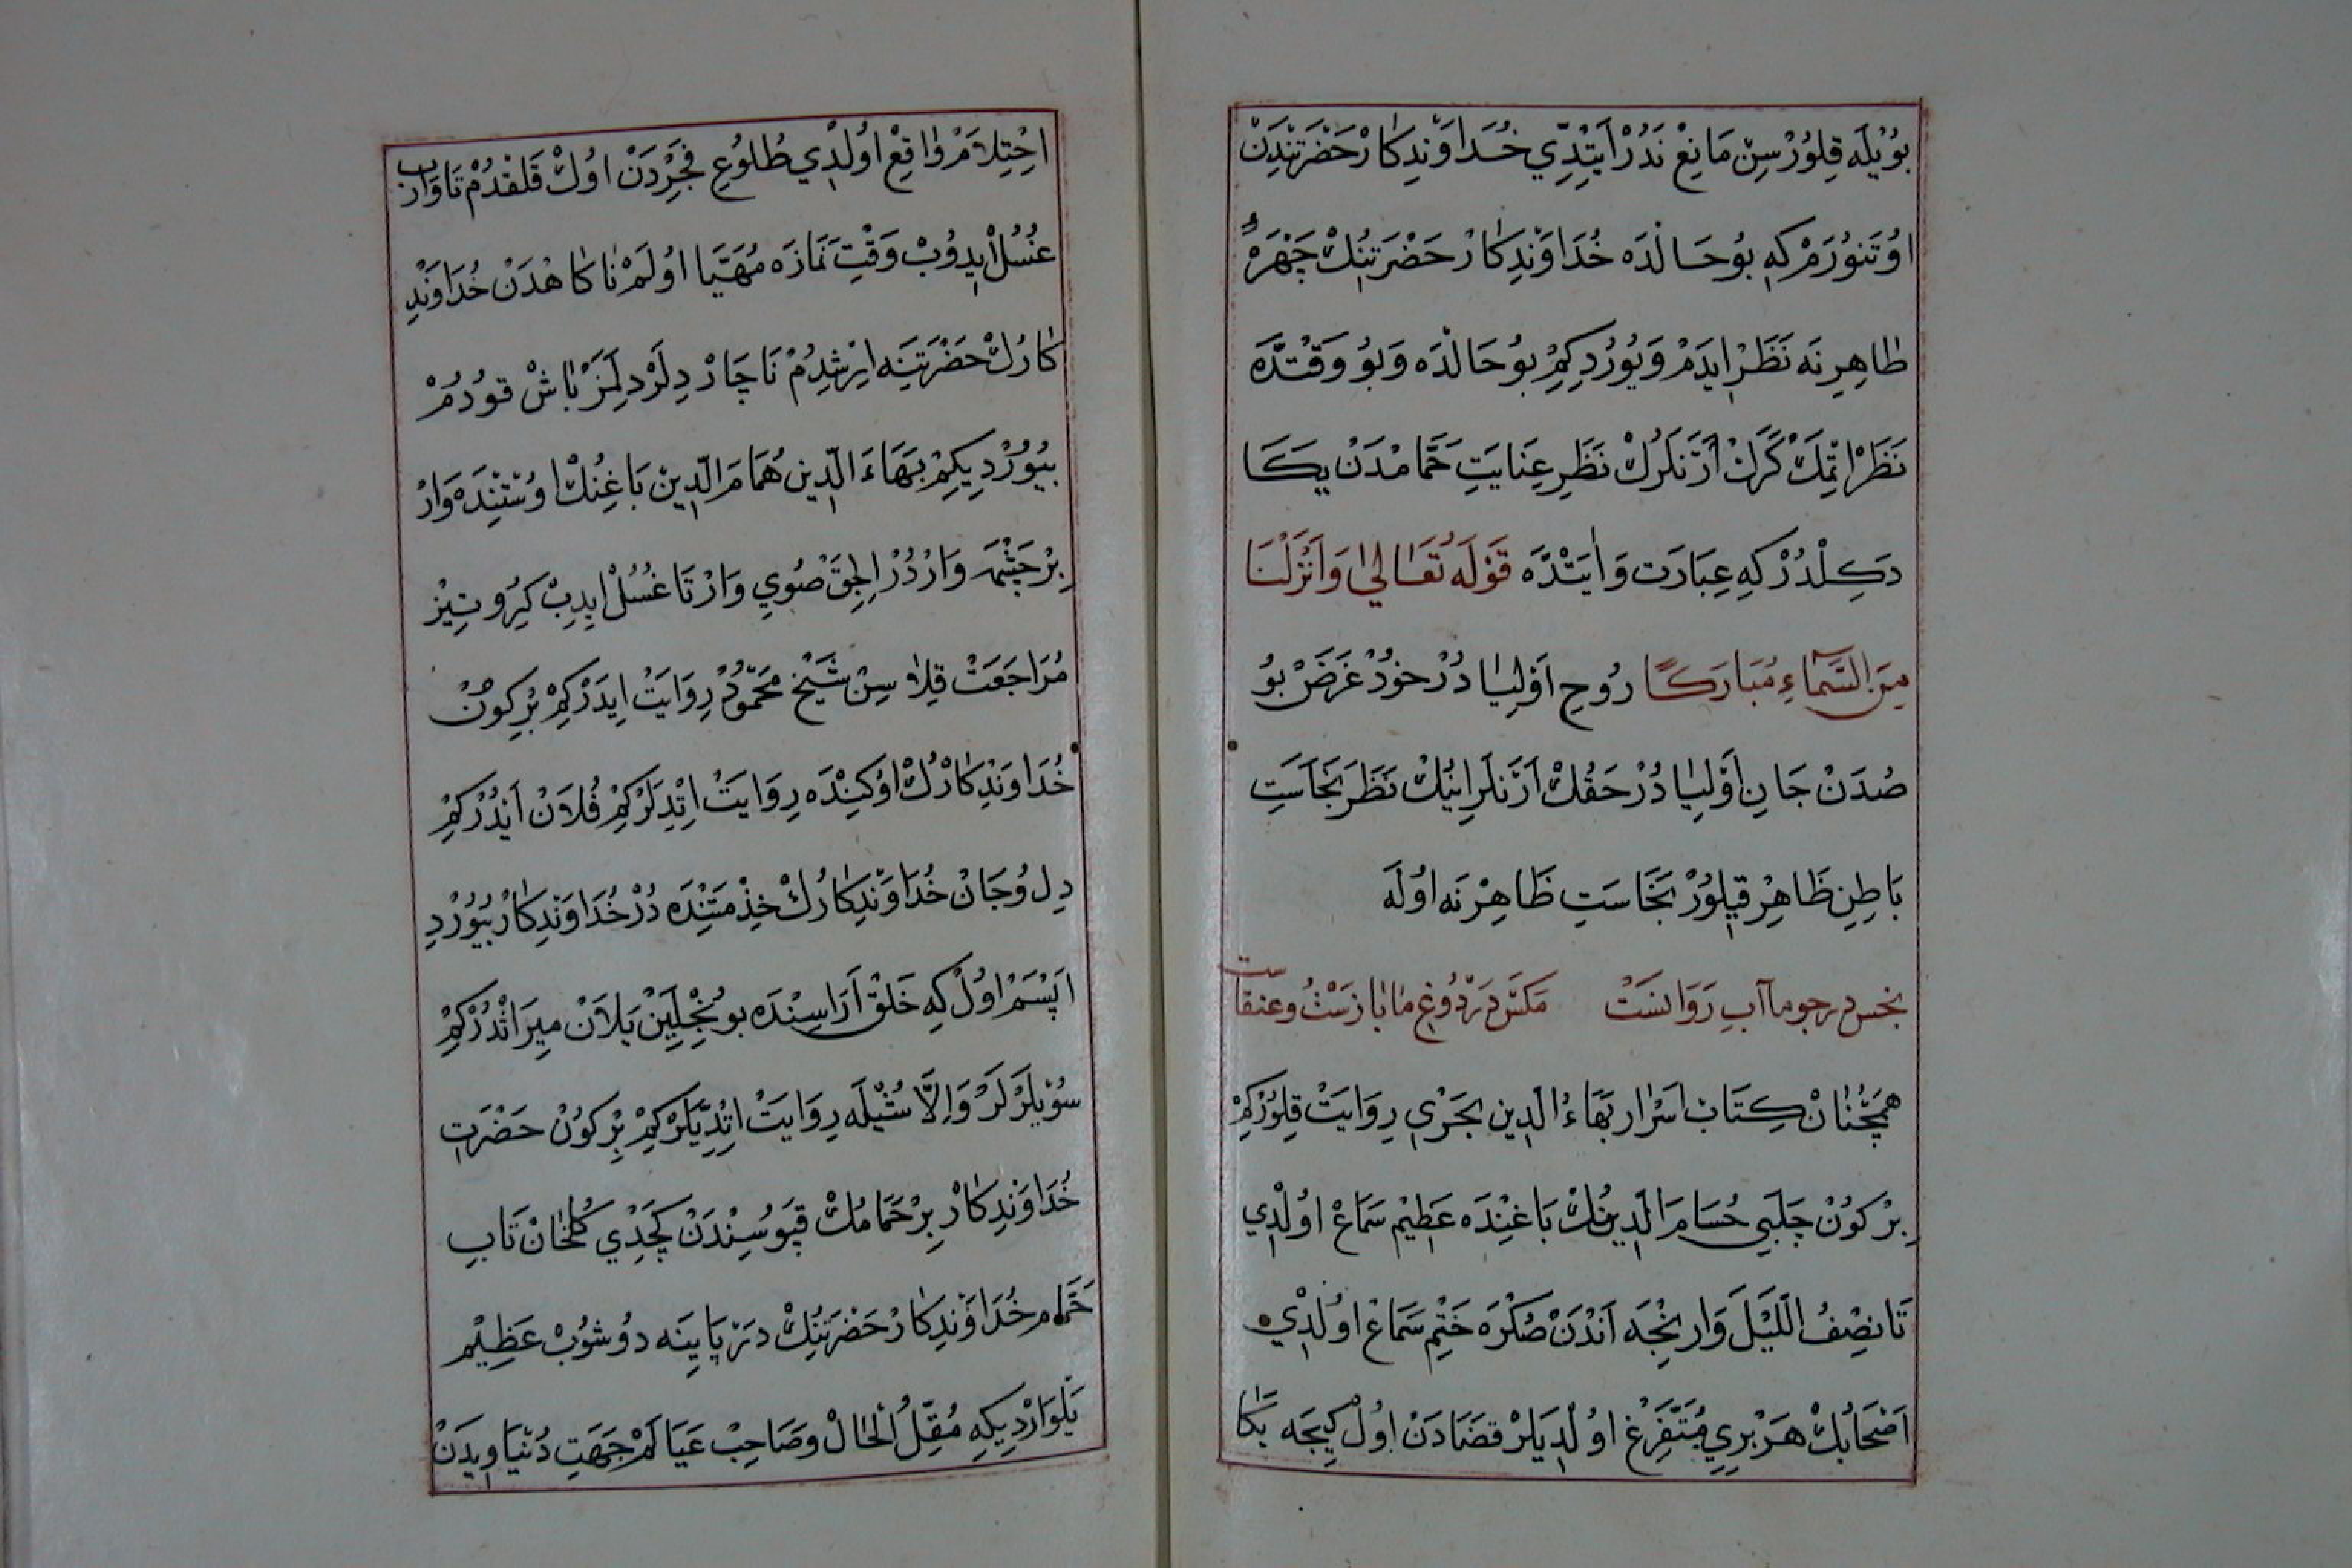 بُوْیلَه قِلوُرْسِنْ مَانِعْ نَدُرْ اَیتْدِّي خُدَاوَنْدِکَارْ حَضْرَتنْدَنْ
اوُتَنوُرَمْ کِه بُوحَالْدَه خُدَاوَنْدِکَارْ حَضْرَتنِكْ چَهْرَهٔ
طَاهِرِنَه نَظَرْ ایدَمْ وَیُورُدِکِمْ بوُحَالْدَه وَبوُ وَقْتدَّه
نَظَرْ اتْمِكْ کَرَكْ اَرَنلَرُكْ نَظَرِ عِنَایَتِ حَمَّامْدَنْ یکَا
دَکِلْدُرْ کِه عِبَارَت وَاٰیَتْدَّه قَوْلَهُ تَعَالٰي وَاَنْزَلْنَا
مِنَ السَّمَآءِ مُبَارَکًا رُوحِ اَوْلِیَا دُرْ خوُدْ غَرَضْ بوُ
صُدَنْ جَانِ اَوْلِیَا دُرْ حَقُكْ اَرَنلَرِنُكْ نَظَرِ نَجَاسَتِ
بَاطِنِ ظَاهِرْ قیِلوُرْ نَجَاسَتِ ظَاهِرْ نَه اوُلَه
نجس در جوما آبِ رَوَانسَتْ مَکَسْ دَرْدُوغِ مَا بَازَسْتُ وعنقاست
همَچُنَانْ کِتَابْ اَسْرَار بَهَاءُ الدّین بَحَرْيِ رِوَایَتْ قِلوُرْکِمْ
بِرْ کوُنْ چَلَبِي حُسَامَ الدّینُكْ بَاغِنْدَه عَظِیْم سَمَاعْ اوُلْدِي
تَا نِصْفُ اللَّیْلَ وَارِنْجَه اَنْدَنْ صُکْرَه خَتْمِ سَمَاعْ اوُلْدِي
اَصْحَابُكْ هَرْ بِرِي مُتَفَرِّغْ اوُلْدِیلَرْ قضَادَنْ اوُلْ کِیجَه بَکَا
اِحْتِلاَمْ وَاقِعْ اوُلْدِي طُلُوعِ فَجْرِدَنْ اوُكْ قَلقدُمْ تَاوَارِب
غُسُلْ ایدوُبْ وَقْتِ نَمَازَه مُهَیَّا اوُلَمْ نَاکَاهْدَنْ خُدَاوَنْدِ
کَارُكْ حَضْرَتِنَه ایرِشدِمْ نَاچَارْ دِلَرْ دِلمَزْ بَاشْ قودُمْ
بیُورْدِیکِمْ بَهَاءَ الدّین هُمَامَ الدّینْ بَاغِنُكْ اوُسْتِنْدَه وَارْ
بِرْ چَشْمَه وَارْدُرْ اِلِجَقْ صُوي وَارْ تَا غُسُلْ ایدِبْ کِرُو تِیْزْ
مُرَاجَعَتْ قِلاَسِنْ شَیْخْ مَحْمُودْ رِوَایَتْ ایدَرْکِمْ بِرْ کوُنْ
خُدَاوَنْدِکَارُكْ اوُکِنْدَه رِوَایَتْ اِتْدِلَرْکِمْ فُلاَنْ اَیْدُرْکِمْ
دِلُ وجَانْ خُدَاوَنْدِکَارُكْ خِذْمَتِنْدَه دُرْ خُدَاوَنْدِکَارْ بُیُورْدِ
اَپْسَمْ اوُلْ کِه خَلْقْ اَرَاسِنْدَه بوُنْجِلَیِنْ یَلاَنْ مِیرَاثْدُرْکِمْ
سُوْیلَرْلَرْ وَاِلَّا شُیْلَه رِوَایَتْ اِتْدِیلَرْکِمْ بِرْ کوُنْ حَضْرَتِ
خُدَاوَنْدِکَارْ بِرْ حَمَّامُكْ قَپوُسِنْدَنْ کَچَدِي کُلْخَانْ تَابِ
حَمَّامْ خُدَاوَنْدِکَارْ حَضْرَتنُكْ دَرْ پَایِنَه دوُشوُبْ عَظِیْم
یَلوَارْدِیکِه مُقِلُّ اْلحَالْ وصَاحِبْ عَیَالَمْ جَهَتِ دُنْیَاوِیدَنْ